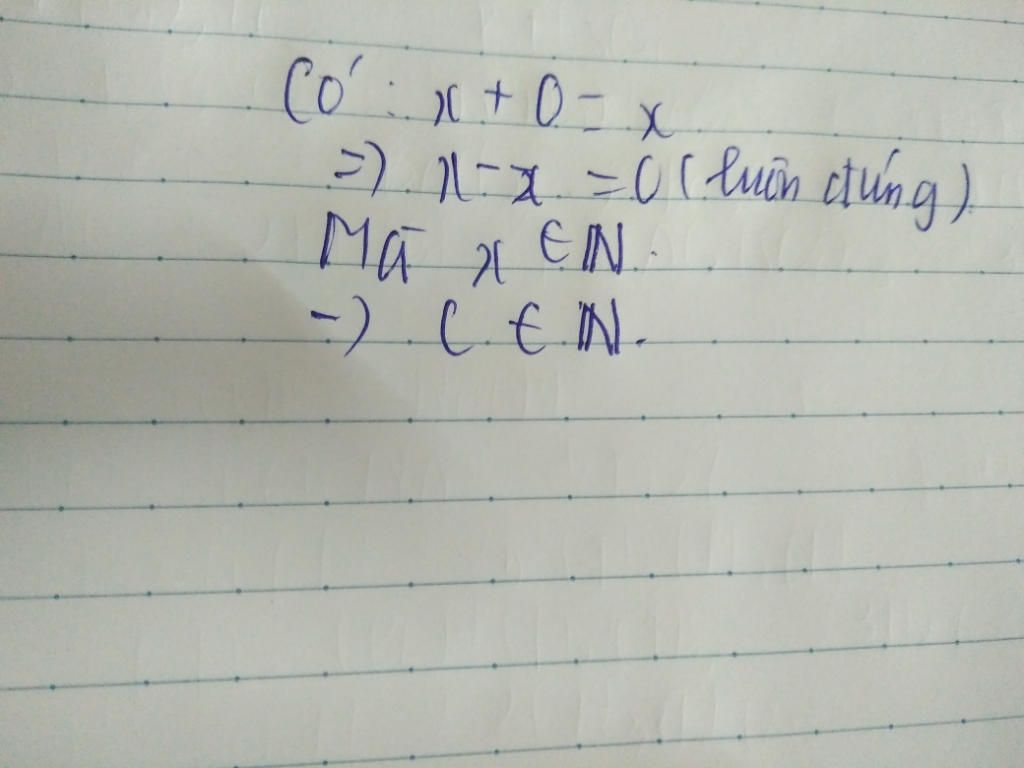 Có : x + 0 = x
=> x - x = 0 (luôn đúng)
Mà x ∈ ℕ.
-) C ∈ ℕ.